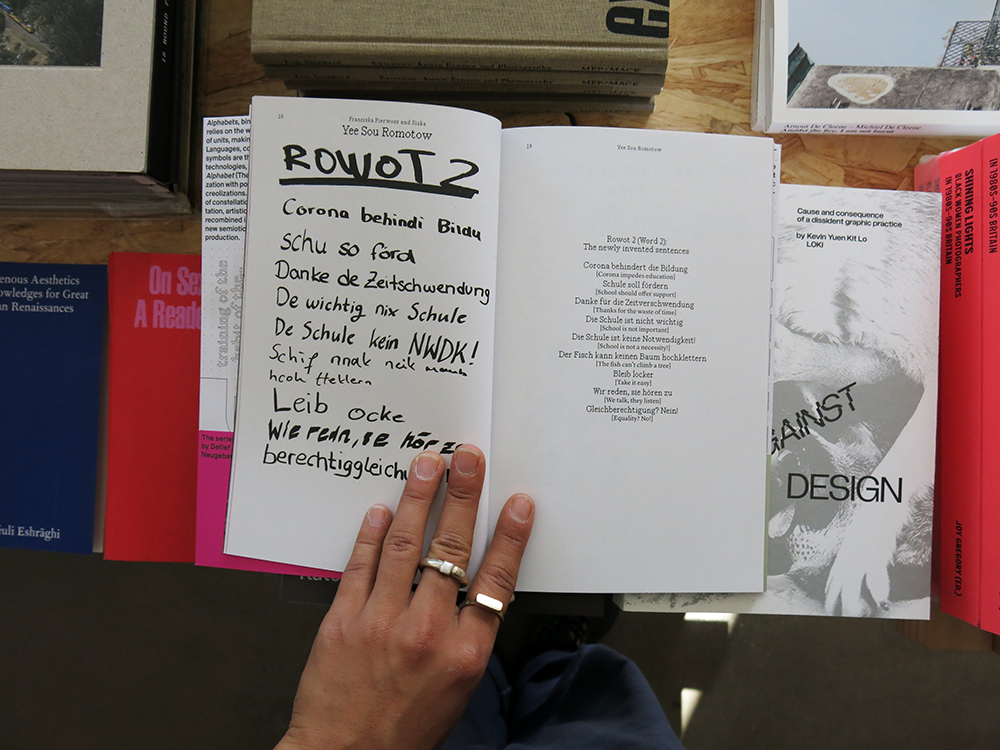 18
Franziska Pierwoss and Siska
Yee Sou Romotow
ROWOT 2
Corona behindi Bildu
schu so förd
Danke de Zeitschwendung
De wichtig nix Schule
De Schule kein NWDK!
Schif nnak neik
hcoh ttetlern
Leib ocke
Wie redn, se hör
berechtiggleich
19
Yee Sou Romotow
Rowot 2 (Word 2):
The newly invented sentences
Corona behindert die Bildung
[Corona impedes education]
Schule soll fördern
[School should offer support]
Danke für die Zeitverschwendung
[Thanks for the waste of time]
Die Schule ist nicht wichtig
[School is not important]
Die Schule ist keine Notwendigkeit!
[School is not a necessity!]
Der Fisch kann keinen Baum hochklettern
[The fish can't climb a tree]
Bleib locker
[Take it easy]
Wir reden, sie hören zu
[We talk, they listen]
Gleichberechtigung? Nein!
[Equality? No!]
Alphabets, bin
relies on the w
of units, makin
Languages, co
symbols are th
technologies,
Alphabet (The
zation with po
creolizations.
of constellat
tation, artistic
recombined i
new semiotic
production.
training of the
The series
by Detlef
Neugebe
enous Aesthetics
owledges for Great
an Renaissances
éuli Eshrāghi
On Se
A Reade
MEP/MACK
Arnout De Cleene — Michiel De Cleene
Amidst the fire, I am not burnt
Cause and consequence
of a dissident graphic practice
by Kevin Yuen Kit Lo
LOKI
GAINST
DESIGN
SHINING LIGHTS
BLACK WOMEN PHOTOGRAPHERS
IN 1980S–90S BRITAIN
JOY GREGORY (ED.)
IN 1980S–90S BRITAIN